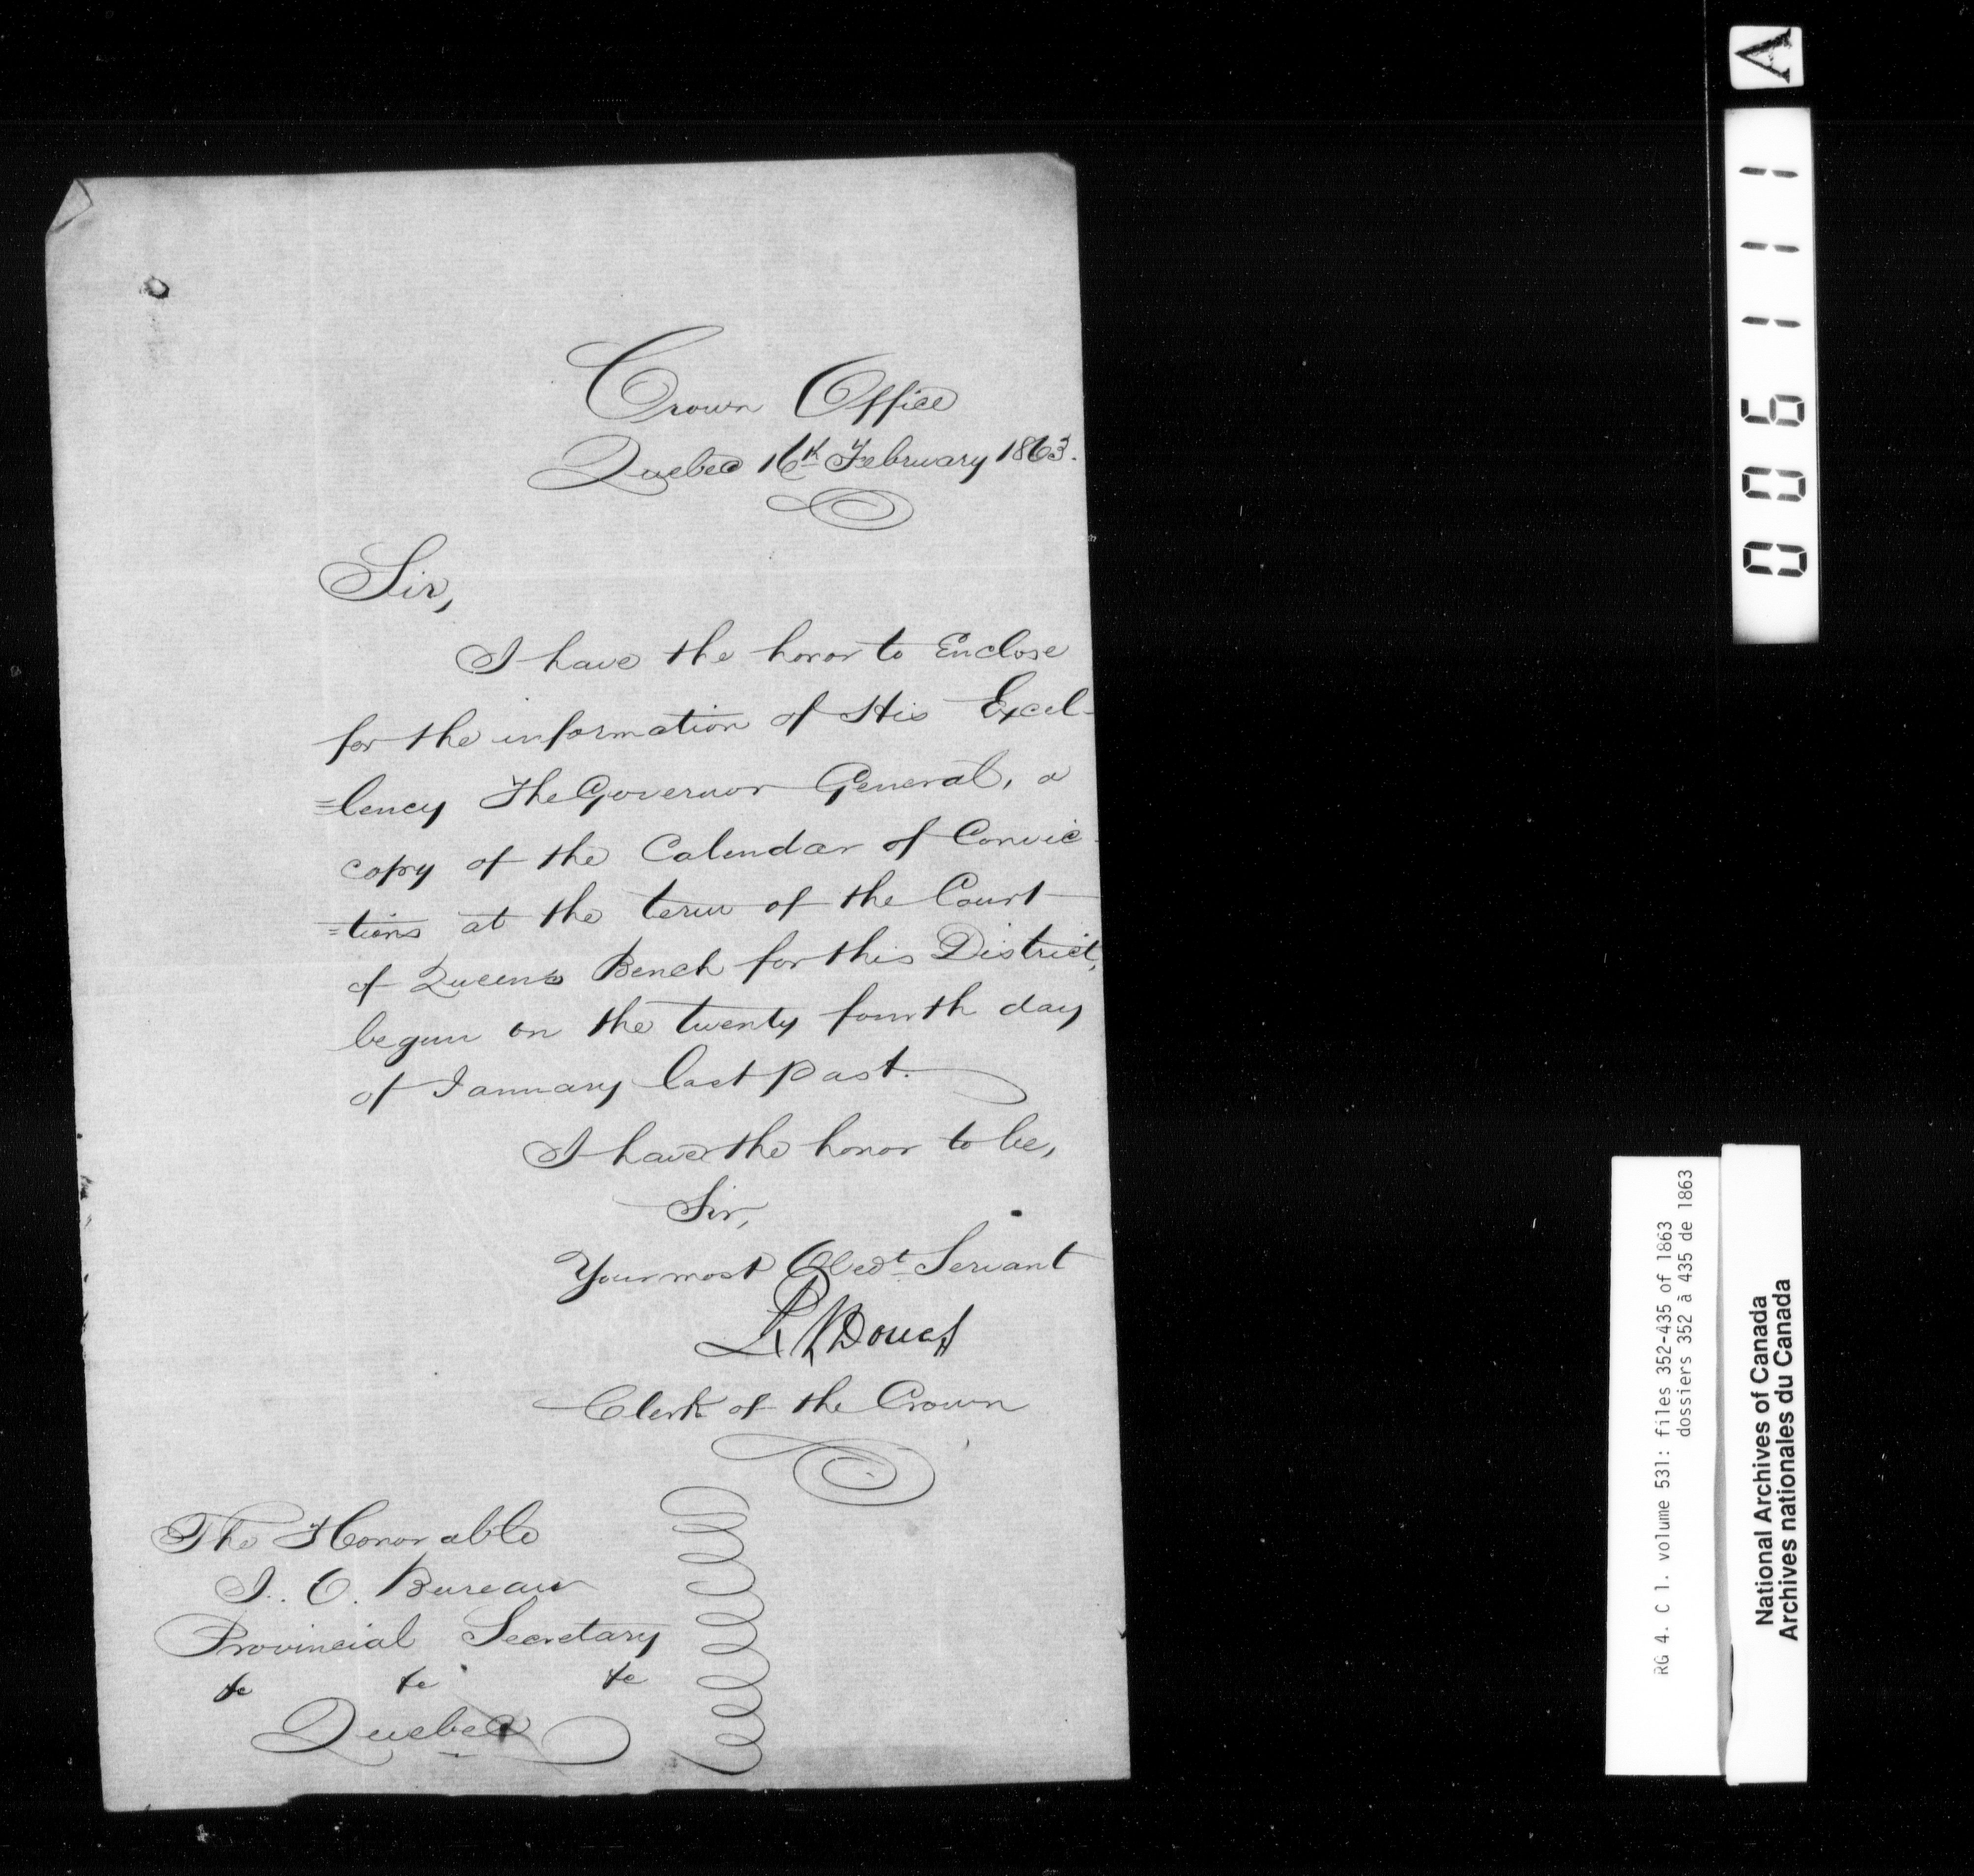 Crown Office
Quebec 16th February 1863.
Sir,
I have the honor to Enclose
for the information of His Excel-
=lency The Governor General, a
copy of the Calendar of Convic-
=tions at the term of the Court
of Queens Bench for this District,
begun on the twenty fourth day
of January last past.
I have the honor to be,
Sir,
Your most Obedt Servant
Clerk of the Crown
The Honorable
J. O. Bureau
Provincial Secretary
&c &c &c
Quebec
A
006111
RG 4. C 1. volume 531: files 352-435 of 1863
dossiers 352 à 435 de 1863
National Archives of Canada
Archives nationales du Canada